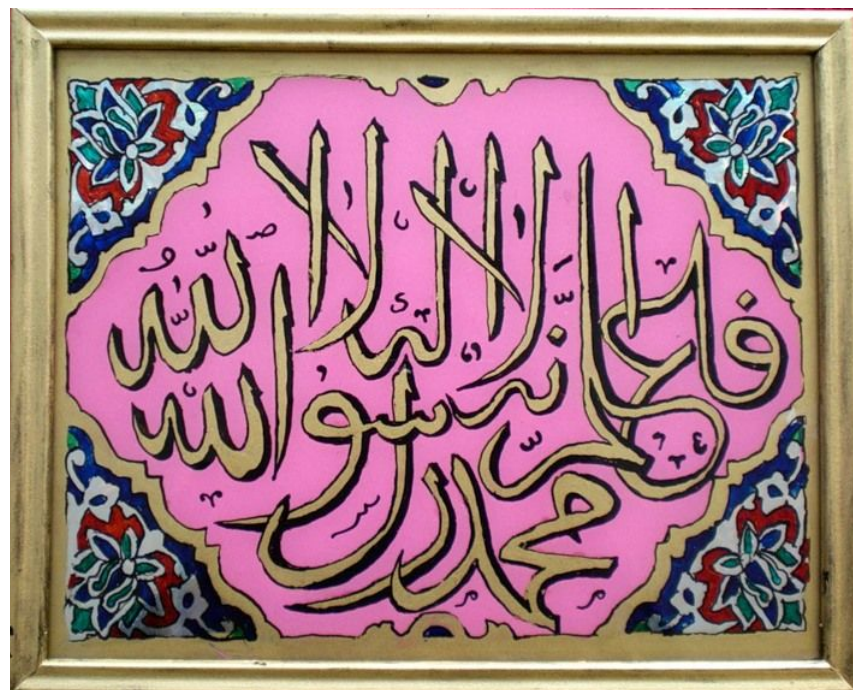 فاعلم أنه لا إله إلا الله
محمد رسول الله